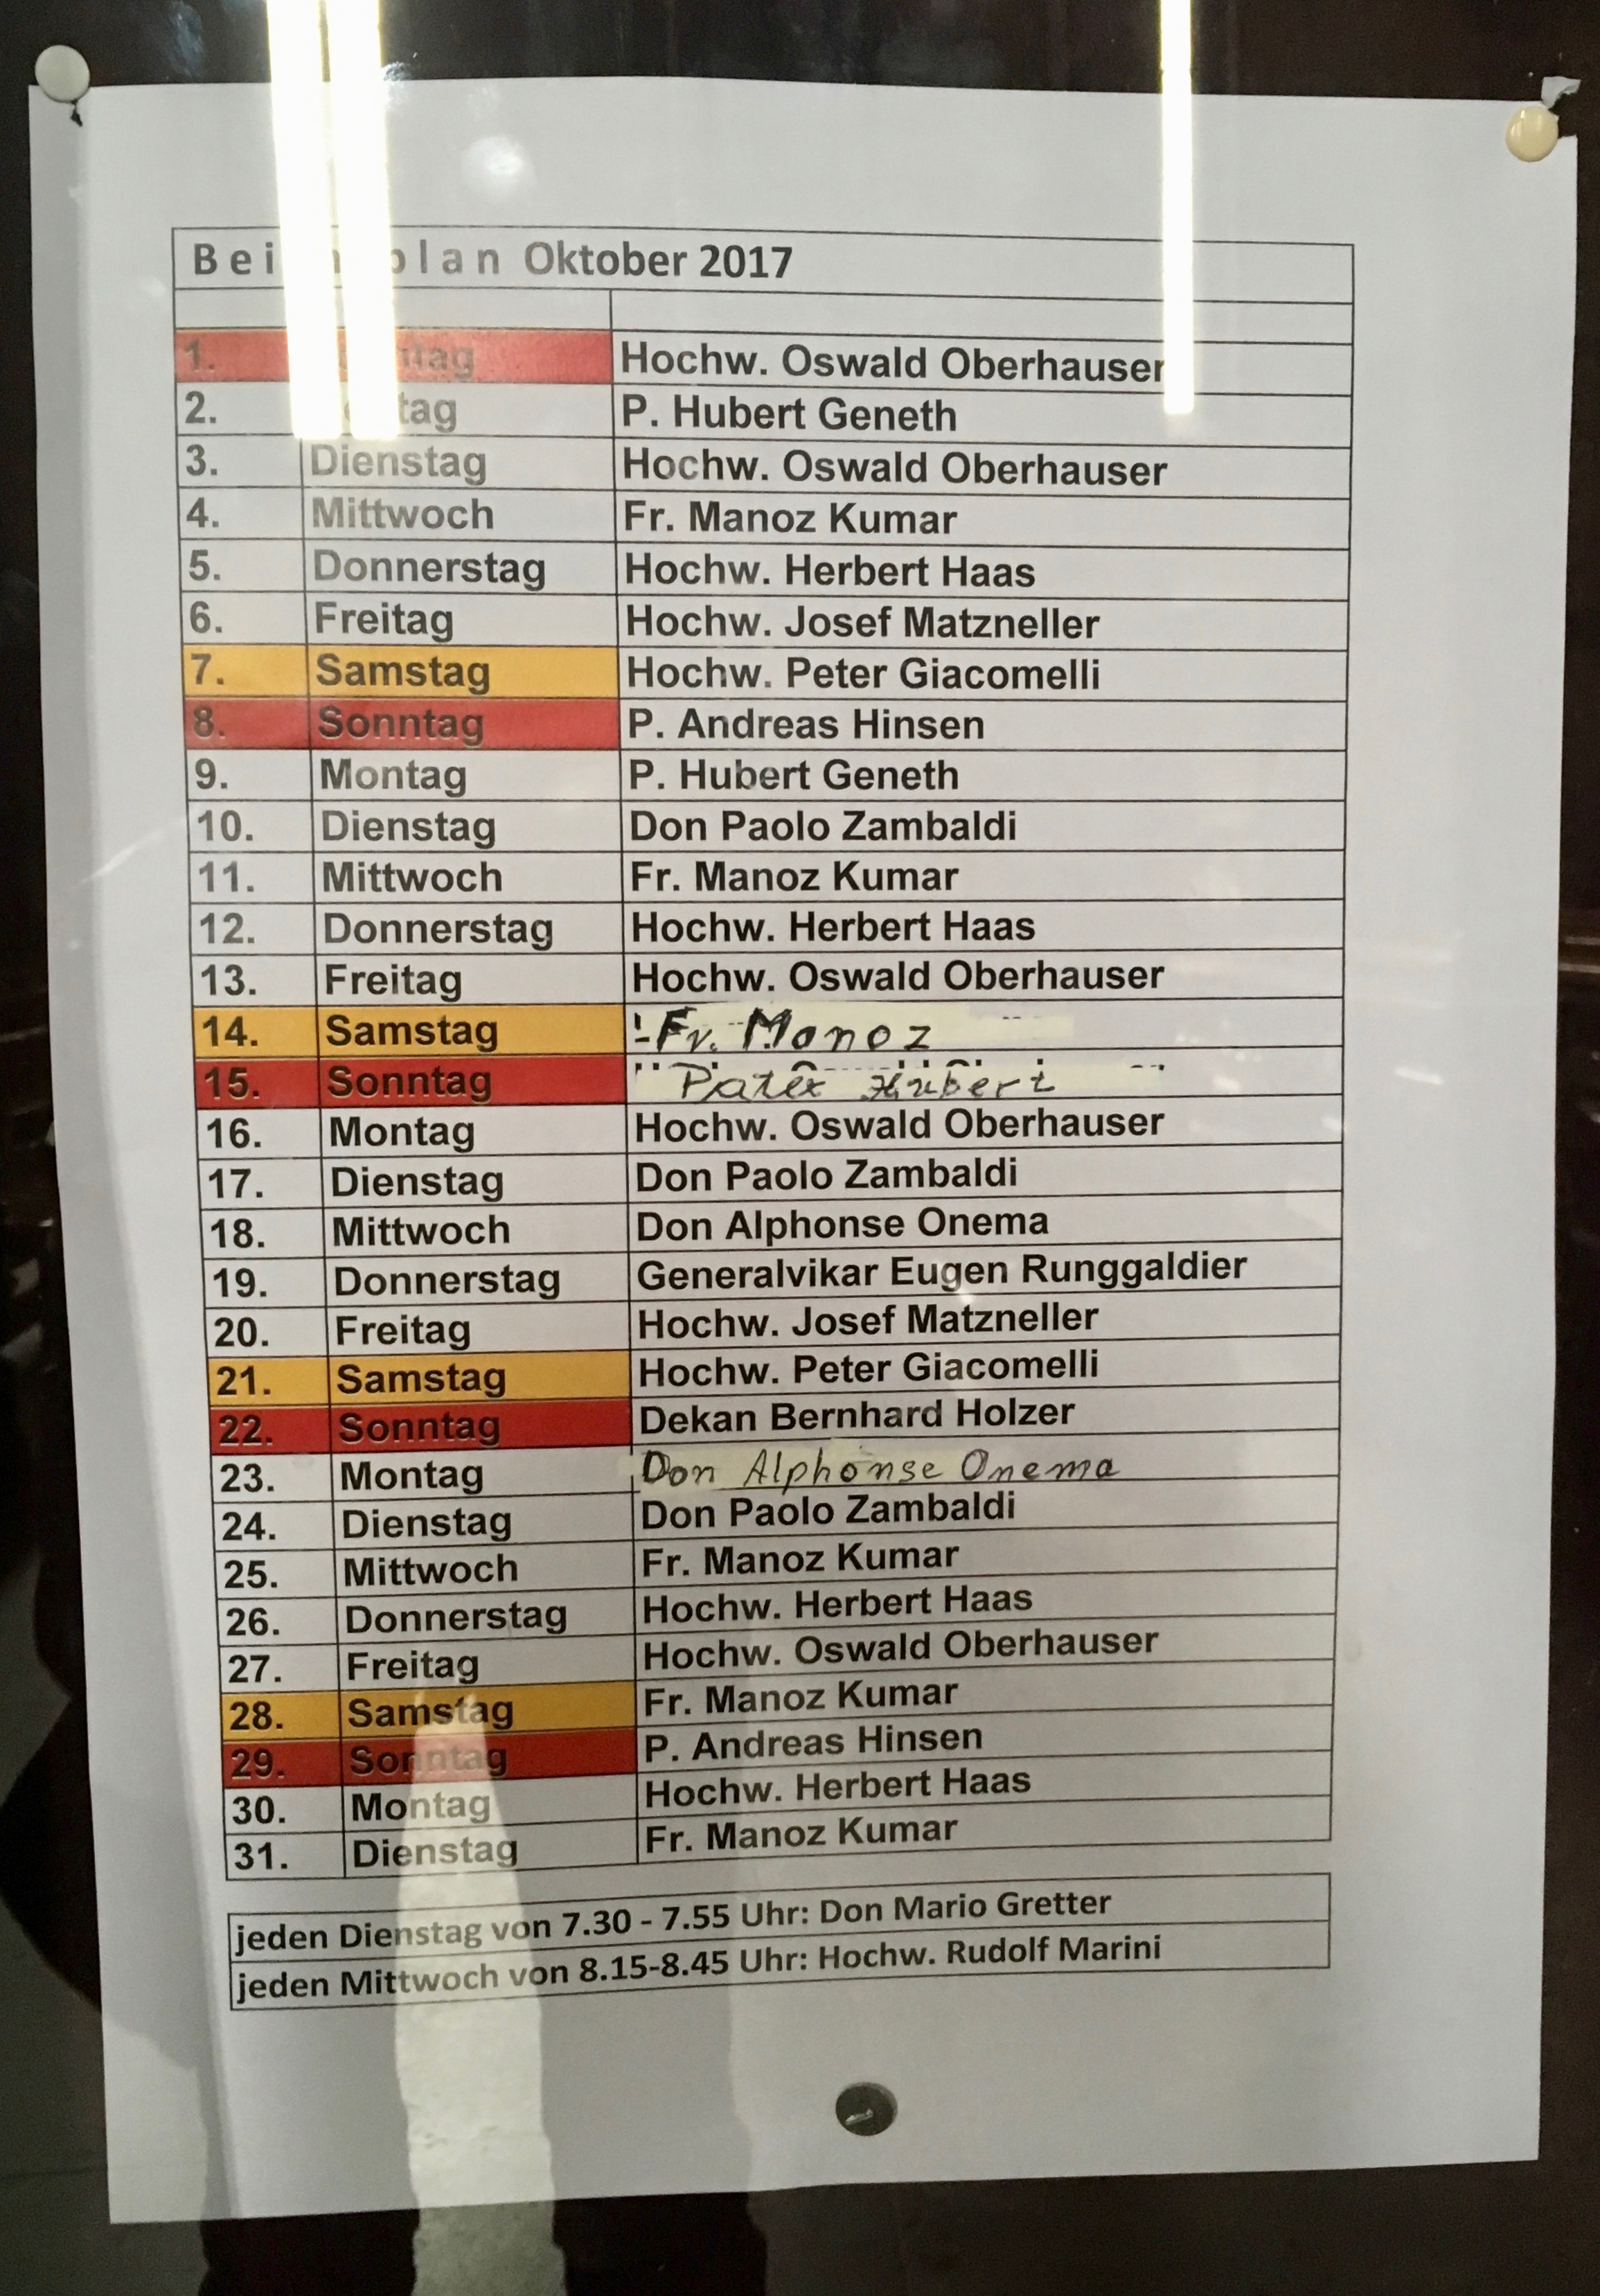 Oktober 2017
1. Hochw. Oswald Oberhauser
2. P. Hubert Geneth
3. Dienstag Hochw. Oswald Oberhauser
4. Mittwoch Fr. Manoz Kumar
5. Donnerstag Hochw. Herbert Haas
6. Freitag Hochw. Josef Matzneller
7. Samstag Hochw. Peter Giacomelli
8. Sonntag P. Andreas Hinsen
9. Montag P. Hubert Geneth
10. Dienstag Don Paolo Zambaldi
11. Mittwoch Fr. Manoz Kumar
12. Donnerstag Hochw. Herbert Haas
13. Freitag Hochw. Oswald Oberhauser
14. Samstag Fr. Manoz
15. Sonntag Pater Hubert
16. Montag Hochw. Oswald Oberhauser
17. Dienstag Don Paolo Zambaldi
18. Mittwoch Don Alphonse Onema
19. Donnerstag Generalvikar Eugen Runggaldier
20. Freitag Hochw. Josef Matzneller
21. Samstag Hochw. Peter Giacomelli
22. Sonntag Dekan Bernhard Holzer
23. Montag Don Alphonse Onema
24. Dienstag Don Paolo Zambaldi
25. Mittwoch Fr. Manoz Kumar
26. Donnerstag Hochw. Herbert Haas
27. Freitag Hochw. Oswald Oberhauser
28. Samstag Fr. Manoz Kumar
29. Sonntag P. Andreas Hinsen
30. Montag Hochw. Herbert Haas
31. Dienstag Fr. Manoz Kumar
jeden Dienstag von 7.30 - 7.55 Uhr: Don Mario Gretter
jeden Mittwoch von 8.15-8.45 Uhr: Hochw. Rudolf Marini